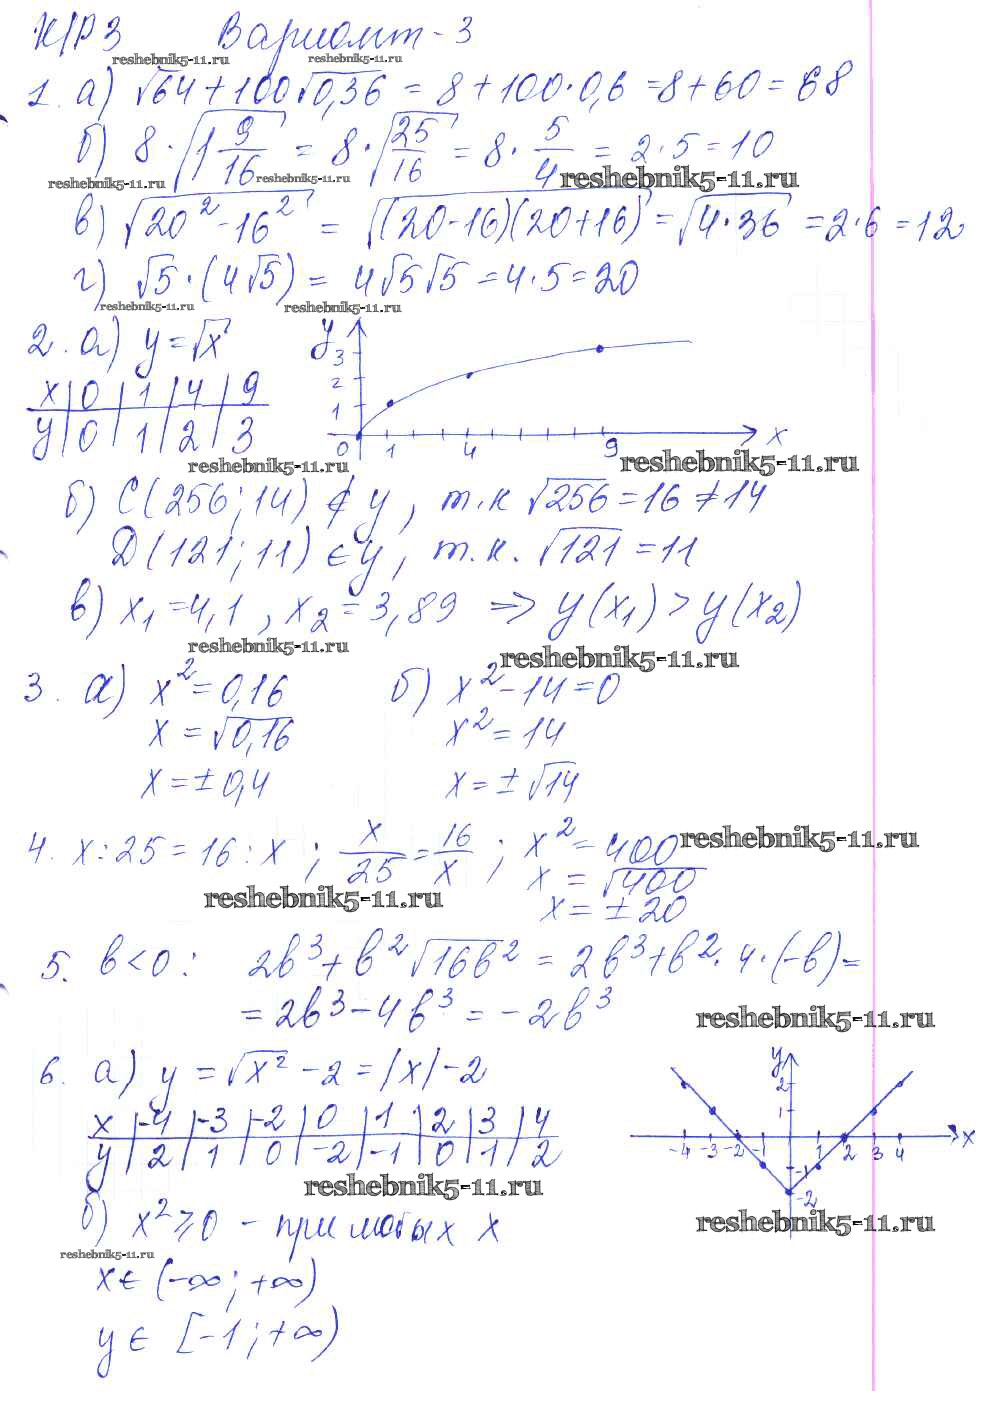 К/Р 3 Вариант-3
reshebnik5-11.ru reshebnik5-11.ru
1. а) √64 + 100√0,36 = 8 + 100·0,6 = 8 + 60 = 68
б) 8 · √(1 9/16) = 8 · √(25/16) = 8 · 5/4 = 2 · 5 = 10
reshebnik5-11.ru reshebnik5-11.ru reshebnik5-11.ru
в) √(20² - 16²) = √((20-16)(20+16)) = √(4·36) = 2·6 = 12
г) √5 · (4√5) = 4√5√5 = 4·5 = 20
reshebnik5-11.ru reshebnik5-11.ru
2. а) y = √x
x | 0 | 1 | 4 | 9
y | 0 | 1 | 2 | 3
y 3 2 1 0 1 4 9 x
reshebnik5-11.ru reshebnik5-11.ru
б) C(256; 14) ∉ y, т.к √256 = 16 ≠ 14
D(121; 11) ∈ y, т.к. √121 = 11
в) x₁ = 4,1, x₂ = 3,89 ⇒ y(x₁) > y(x₂)
reshebnik5-11.ru reshebnik5-11.ru
3. а) x² = 0,16 б) x² - 14 = 0
x = √0,16 x² = 14
x = ± 0,4 x = ± √14
4. x : 25 = 16 : x ; x/25 = 16/x ; x² = 400 reshebnik5-11.ru
reshebnik5-11.ru x = √400
x = ± 20
5. b < 0 : 2b³ + b²√16b² = 2b³ + b² · 4 · (-b) =
= 2b³ - 4b³ = - 2b³ reshebnik5-11.ru
6. а) y = √x² - 2 = |x| - 2
x | -4 | -3 | -2 | 0 | 1 | 2 | 3 | 4
y | 2 | 1 | 0 | -2 | -1 | 0 | 1 | 2
y 2 1 -4 -3 -2 -1 1 2 3 4 x -1 -2
reshebnik5-11.ru reshebnik5-11.ru
б) x² ⩾ 0 - при любых x
reshebnik5-11.ru
x ∈ (-∞; +∞)
y ∈ [-1; +∞)